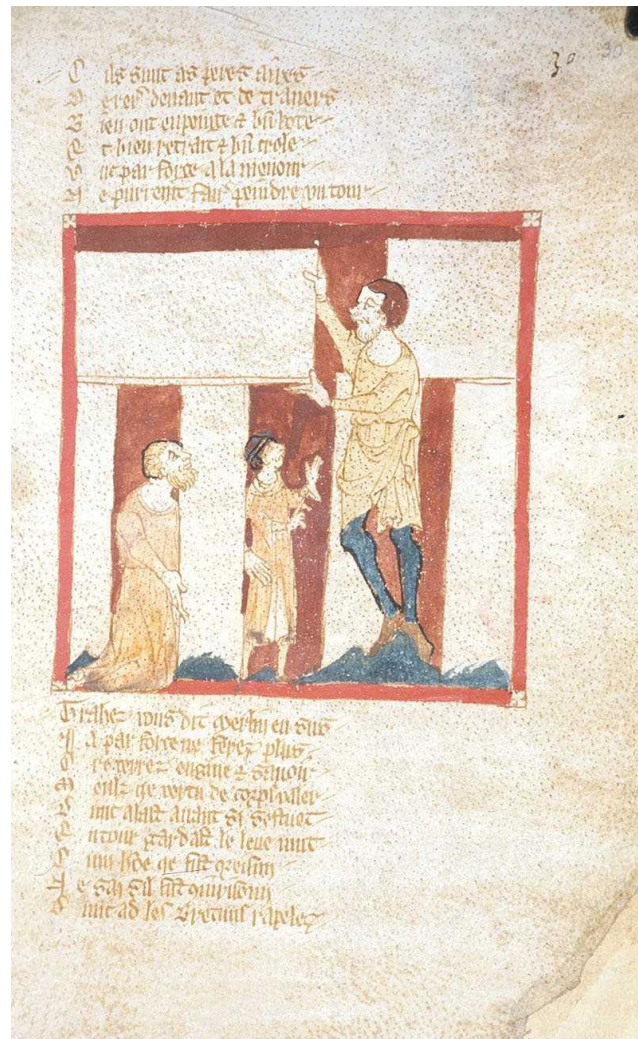 30 30
Cils sunt as peres aers
D erer devant et de travers
B ien ont enpeinte & bñ bote
E t bien retrait & bñ crole
U nc par force a la menour
N e purrent fair peindre un tour
Trahez vous dit Merlin en sus
I a par force ne ferez plus
O r verrez engine & savoir
M eulz qe vertu de corps valer
D unt alast avant si sestuet
E ntour gardast le leve muit
C um hõe qe fist oreisun
N e sai sil fist
D unc ad les Bretuns rapelez